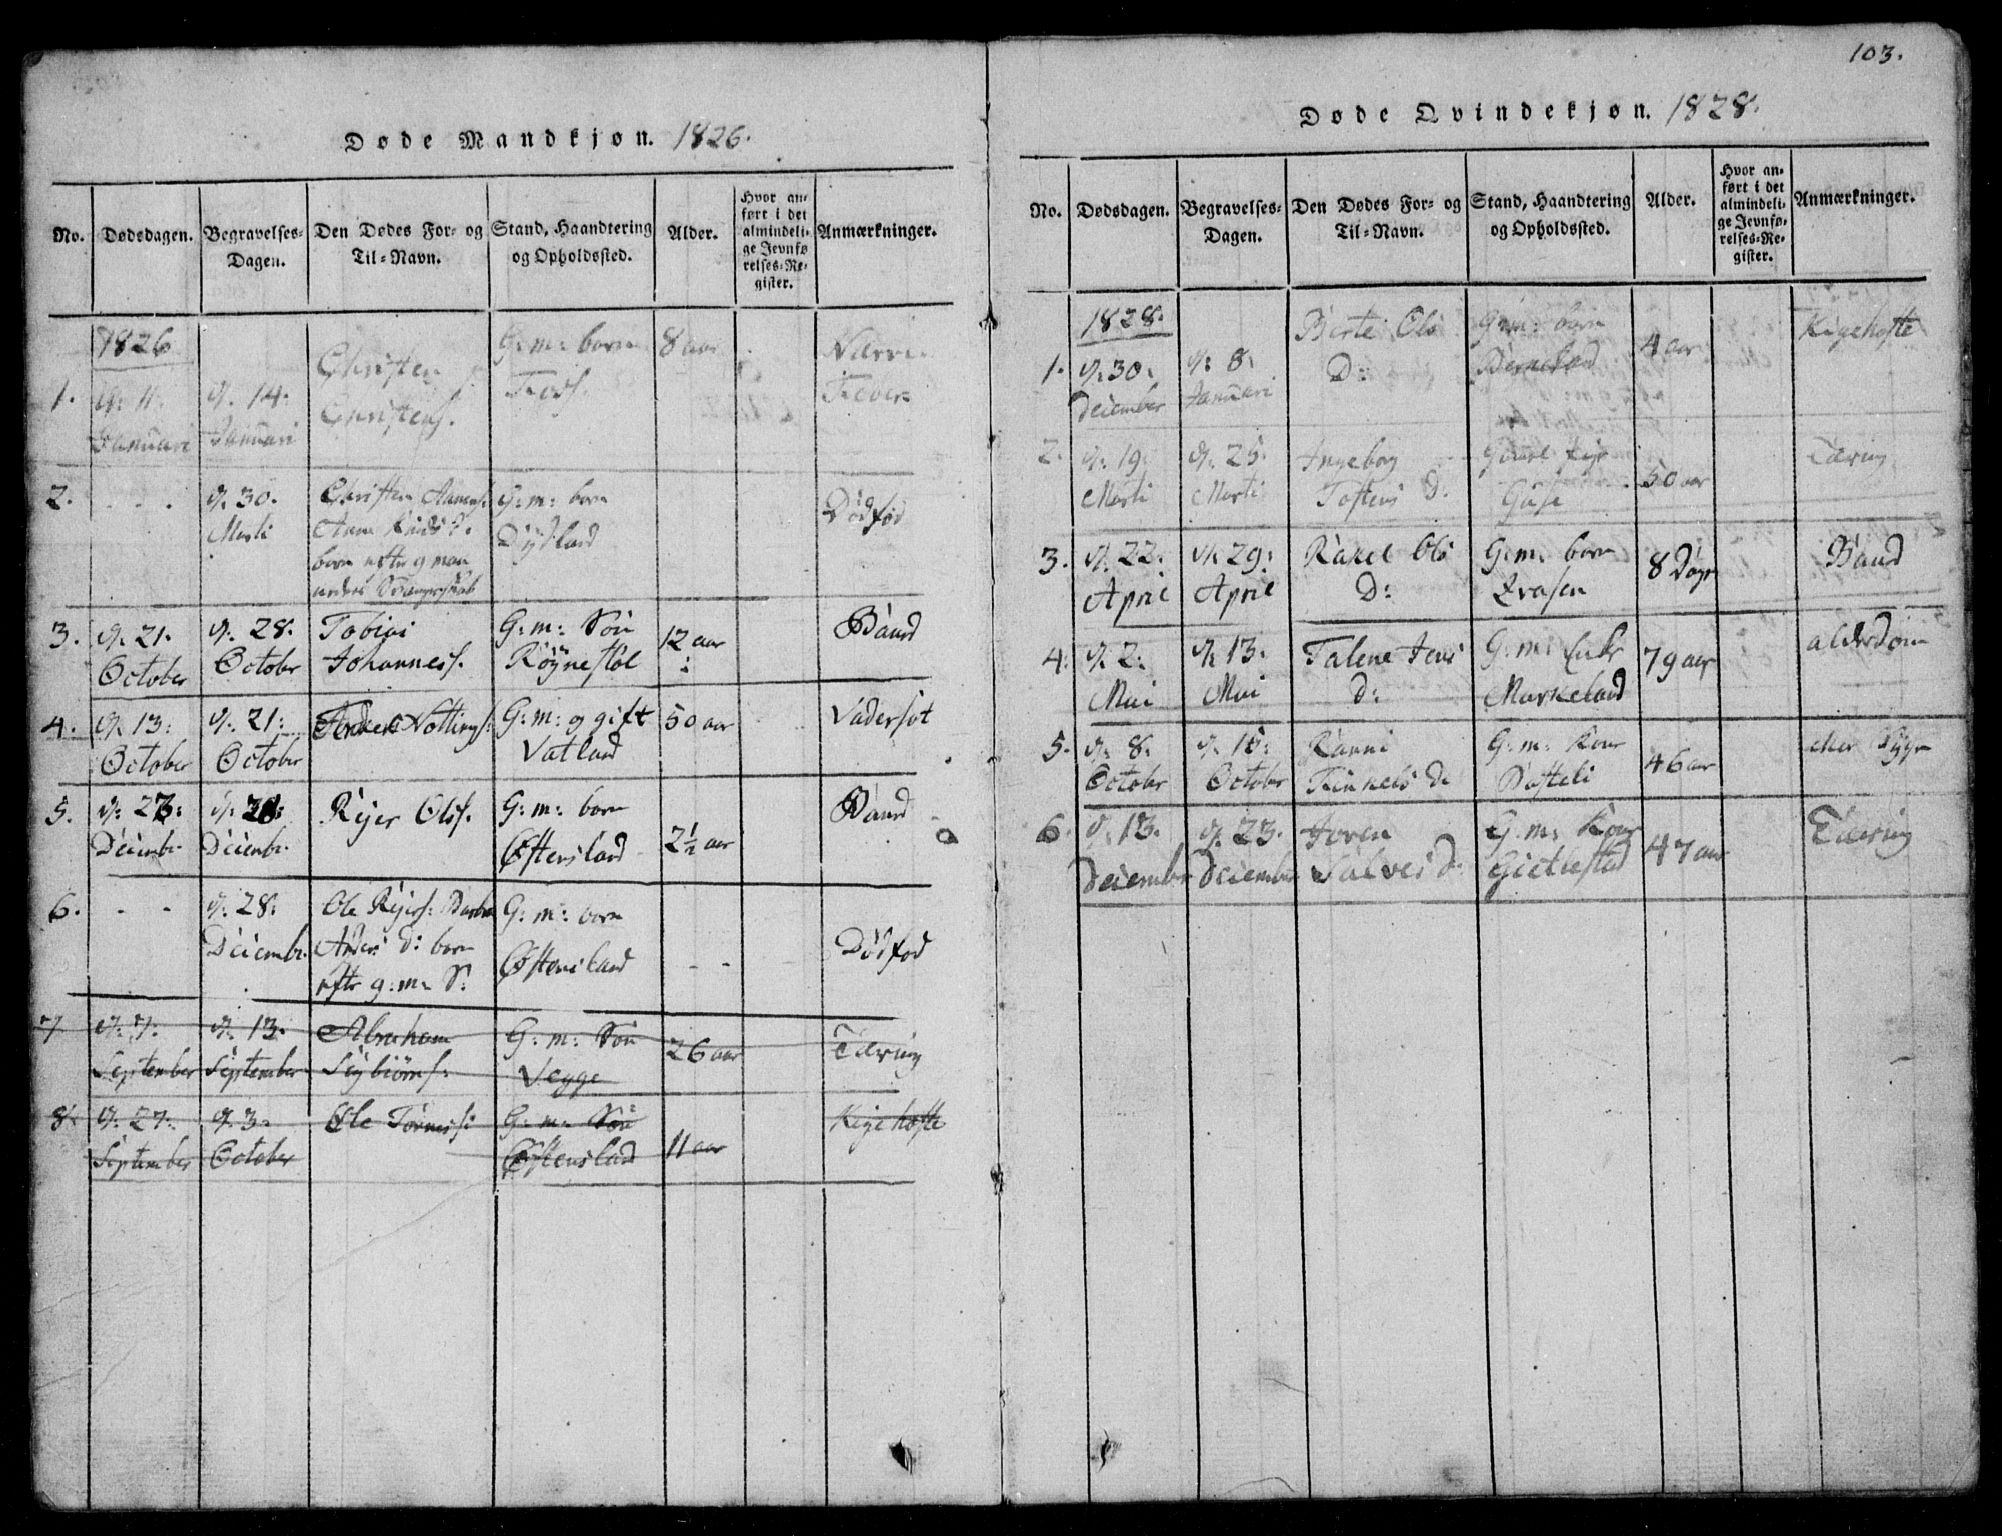 Døde Mandkjøn. 1826.
No. Dødsdagen. Begravelses-Dagen. Den Dødes For- og Til-Navn. Stand, Haandtering og Opholdssted. Alder. Hvor anført i det almindelige Jevnførelses-Register. Anmærkninger.
1826
1. d: 11. Januari d. 14. Januari Christen Christens. G: m: born 8 aar Nærve Feber
2. - - - d. 30. Marti Christen born efter 9 maaneders G: m: born Dydland Dødfød
3. d. 21. October d. 28. October Tobias Johanness. G: m: Søn Røynestøl 12 aar Baand
4. d. 13: October d. 21: October G: m: og gift Vatland 50 aar Vadersot
5. d: 23: Decembr. Decembr. Rejer Ols. G: m: born Østensland 2½ aar Baand
6. - - d. 28: Decembr. Ole Rejers: Anders D: born efter 9: m: S: G: m: born Østensland - - Dødfød
7 d. 7: September d. 13. September Abraham Sigbiørns. G: m: Søn Vegge 26 aar Tæring
8. d. 27: September d. 3. October Ole Tørress: G: m: Søn Østensland 11 aar Kigehoste
103.
Døde Qvindekjøn. 1828.
No. Dødsdagen. Begravelses-Dagen. Den Dødes For- og Til-Navn. Stand, Haandtering og Opholdssted. Alder. Hvor anført i det almindelige Jevnførelses-Register. Anmærkninger.
1828.
1. d. 30. December d: 8. Januari Birte Ols D: G: m: born 4 aar Kigehoste
2. d. 19. Marti d. 25. Marti Ingeborg Tostens D. 50 aar Tæring
3. d. 22. April d. 29: April Rakel Ols D: G: m: born 8 Døgn Baand
4. d. 2. Mai d. 13. Mai Talene Jens D: G: m: Markeland 79 aar alderdom
5. d. 8. October d. 15: October Ranni D: G: m: Kone 46 aar
6. d. 13. December d. 23. December Joren Salves D. G: m: Kone 47 aar Tæring